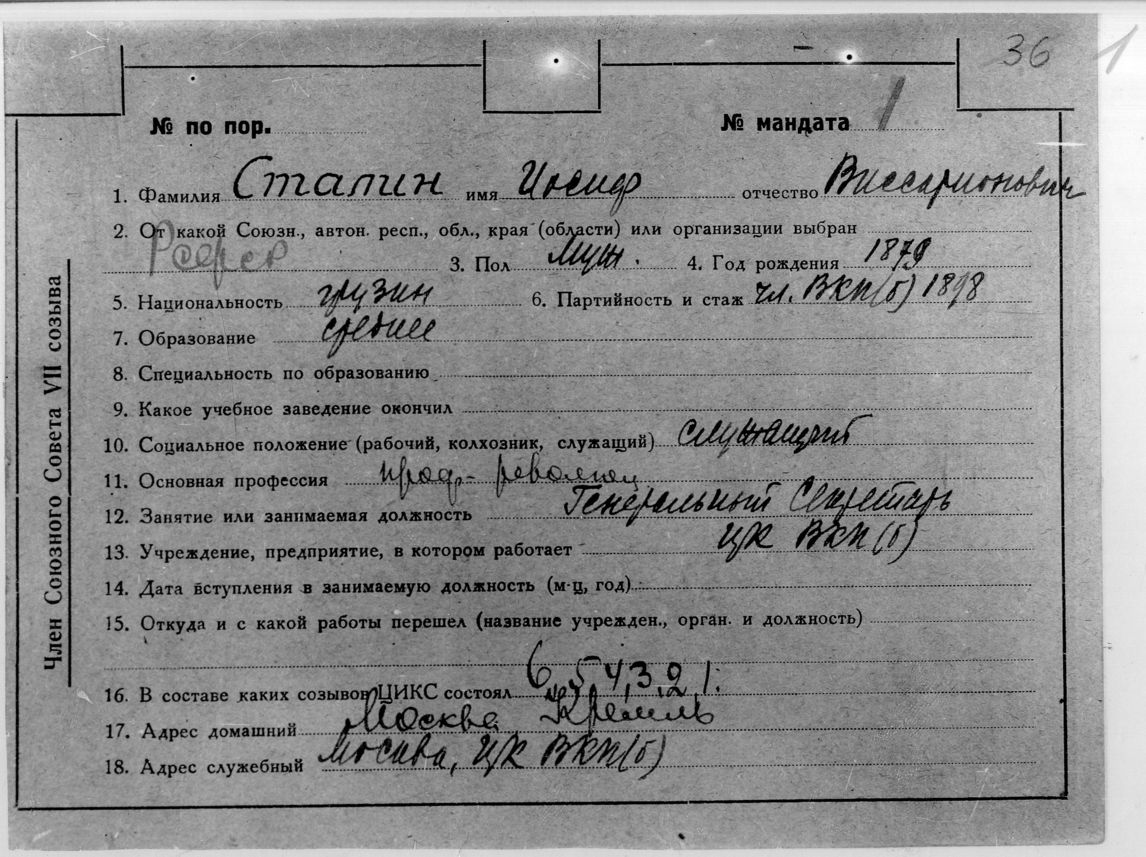 36 1
№ по пор. № мандата 1
1. Фамилия Сталин имя Иосиф отчество Виссарионович
2. От какой Союзн., автон. респ., обл., края (области) или организации выбран
Рсфср 3. Пол муж. 4. Год рождения 1879
5. Национальность грузин 6. Партийность и стаж чл. ВКП(б) 1898
7. Образование среднее
8. Специальность по образованию
9. Какое учебное заведение окончил
10. Социальное положение (рабочий, колхозник, служащий) служащий
11. Основная профессия проф.-революц
12. Занятие или занимаемая должность Генеральный Секретарь
13. Учреждение, предприятие, в котором работает ЦК ВКП(б)
14. Дата вступления в занимаемую должность (м-ц, год)
15. Откуда и с какой работы перешел (название учрежден., орган. и должность)
16. В составе каких созывов ЦИКС состоял 6, 5, 4, 3, 2, 1.
17. Адрес домашний Москва Кремль
18. Адрес служебный Москва, ЦК ВКП(б)
Член Союзного Совета VII созыва